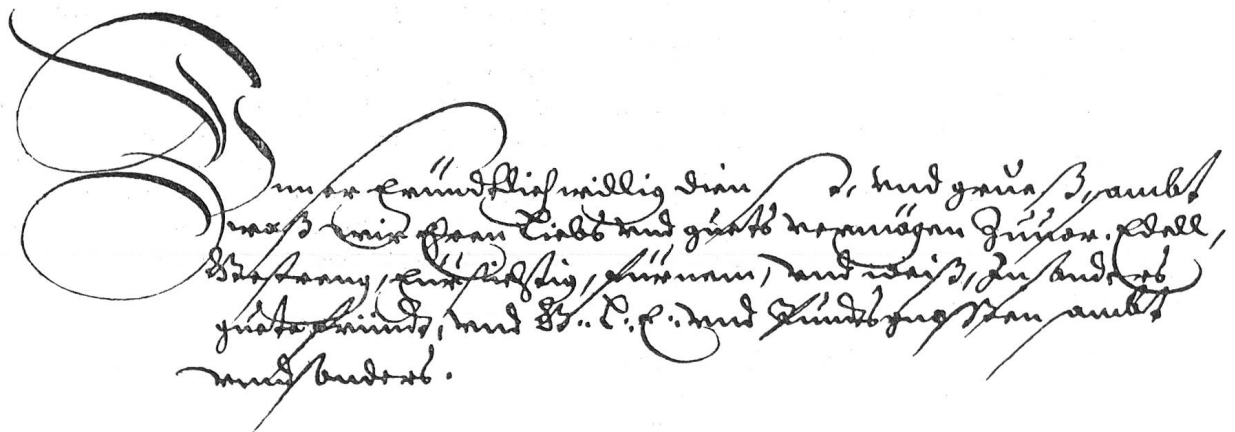 Unser fründtlich willig dienste, vnd grueß, sambt
waß wir Eren Liebs vnd guets vermögen Zuuor. Edell,
Gestreng, fürsichtig, fürnem, vnd weiß, Insonders
guete fründt, vnd G.. L. E.. vnd Pundtsgnossen sambt
vnd sonders.